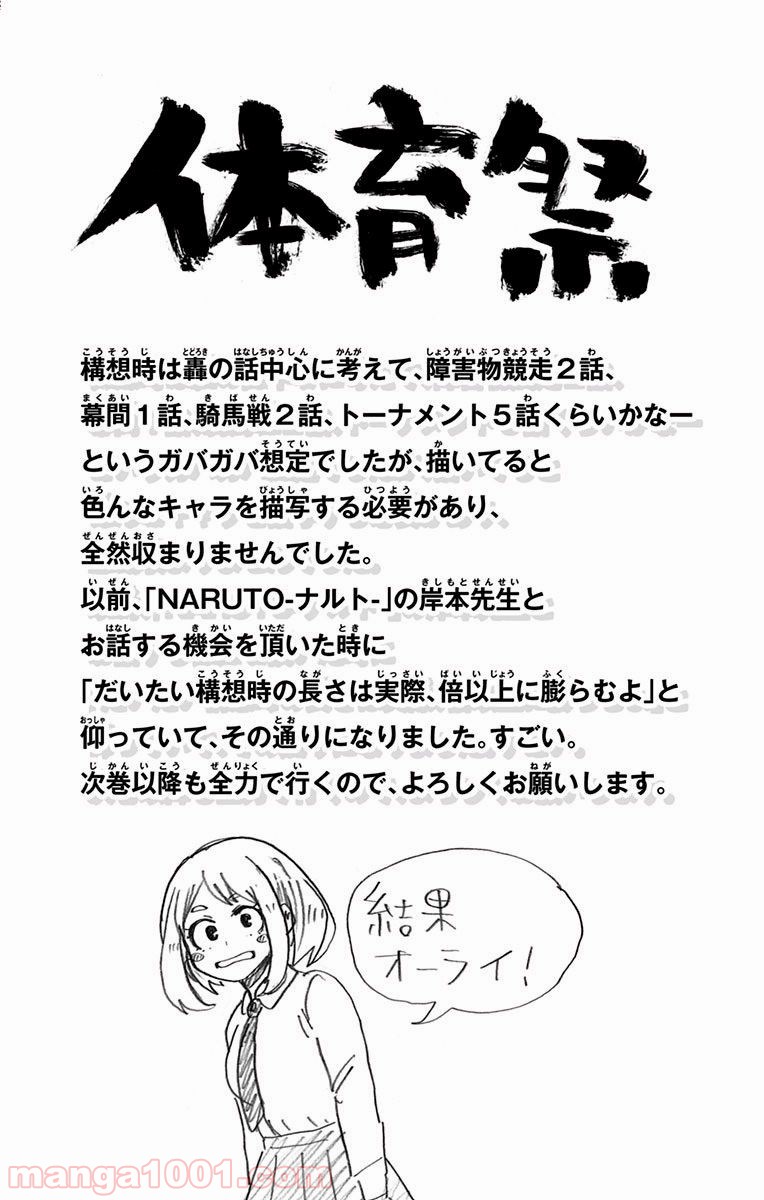 体育祭
構想時は轟の話中心に考えて、障害物競走２話、
幕間１話、騎馬戦２話、トーナメント５話くらいかなー
というガバガバ想定でしたが、描いてると
色んなキャラを描写する必要があり、
全然収まりませんでした。
以前、「NARUTO-ナルト-」の岸本先生と
お話する機会を頂いた時に
「だいたい構想時の長さは実際、倍以上に膨らむよ」と
仰っていて、その通りになりました。すごい。
次巻以降も全力で行くので、よろしくお願いします。
結果
オーライ!
manga1001.com